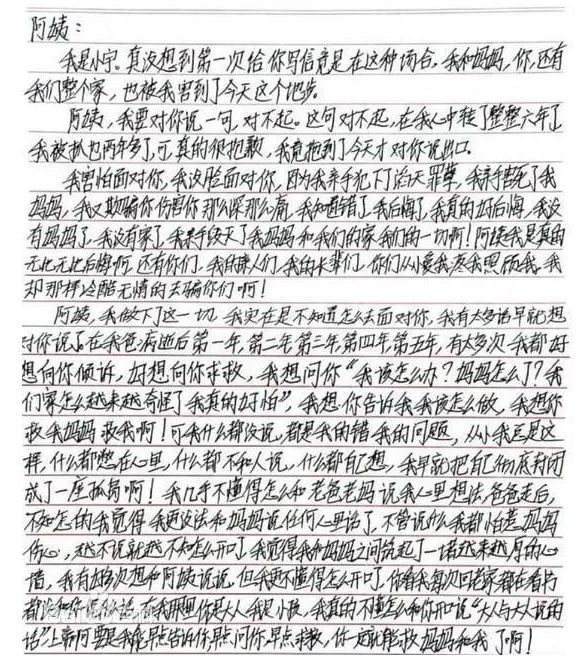 阿姨：
我是小宁。真没想到第一次给你写信竟是在这种场合。我和妈妈，你，还有
我们整个家，也被我害到了今天这个地步
阿姨，我要对你说一句，对不起。这句对不起，在我心中转了整整六年了
我被抓也两年多了，可真的很抱歉，我竟拖到了今天才对你说出口。
我害怕面对你，我没脸面对你，因为我亲手犯下了滔天罪孽，我亲手害死了我
妈妈，我又欺骗你伤害你那么深那么痛，我知道错了我后悔了，我真的好后悔，我没
有妈妈了，我没有家了，我亲手毁灭了我妈妈和我们的家我们的一切啊！阿姨我是真的
无比无比后悔啊，还有你们，我的亲人们，我的长辈们，你们从小爱我疼我照顾我，我
却那样冷酷无情的去骗你们啊！
阿姨，我做下了这一切，我实在是不知道怎么去面对你，我有太多话早就想
对你说了。在我爸病逝后第一年，第二年第三年，第四年第五年，有太多次我都好
想向你倾诉，好想向你求救，我想问你“我该怎么办？妈妈怎么了？我
们家怎么越来越奇怪了我真的好怕”，我想你告诉我我该怎么做，我想你
救我妈妈救我啊！可我什么都没说，都是我的错我的问题，从小我总是这
样，什么都憋在心里，什么都不和人说，什么都自己想，我早就把自己彻底封闭
成了一座孤岛啊！我几乎不懂得怎么和老爸老妈说我心里想法，爸爸走后，
不知怎的我觉得我更没法和妈妈说任何心里话了，不管说什么我都怕惹妈妈
伤心，越不说就越不知怎么开口了，我觉得我和妈妈之间筑起了一堵越来越厚的心
墙，我有好多次想和阿姨说说，但我更不懂得怎么开口了，你看我每次回老家都在看书
都没和你说什么话，在我那里你是大人我是小孩，我真的不懂怎么和你开口说“大人与大人说的
话”上帝啊要是我能早点告诉你，早点问你，早点求救，你一定就能救妈妈和我了啊！